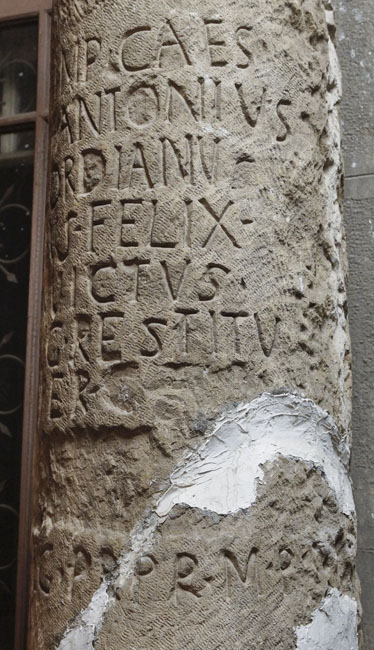 MP·CAES
ANTONIUS
RDIANU
US·FELIX·
ICTVS
RESTITU
ER
G·PR·PR·M·P